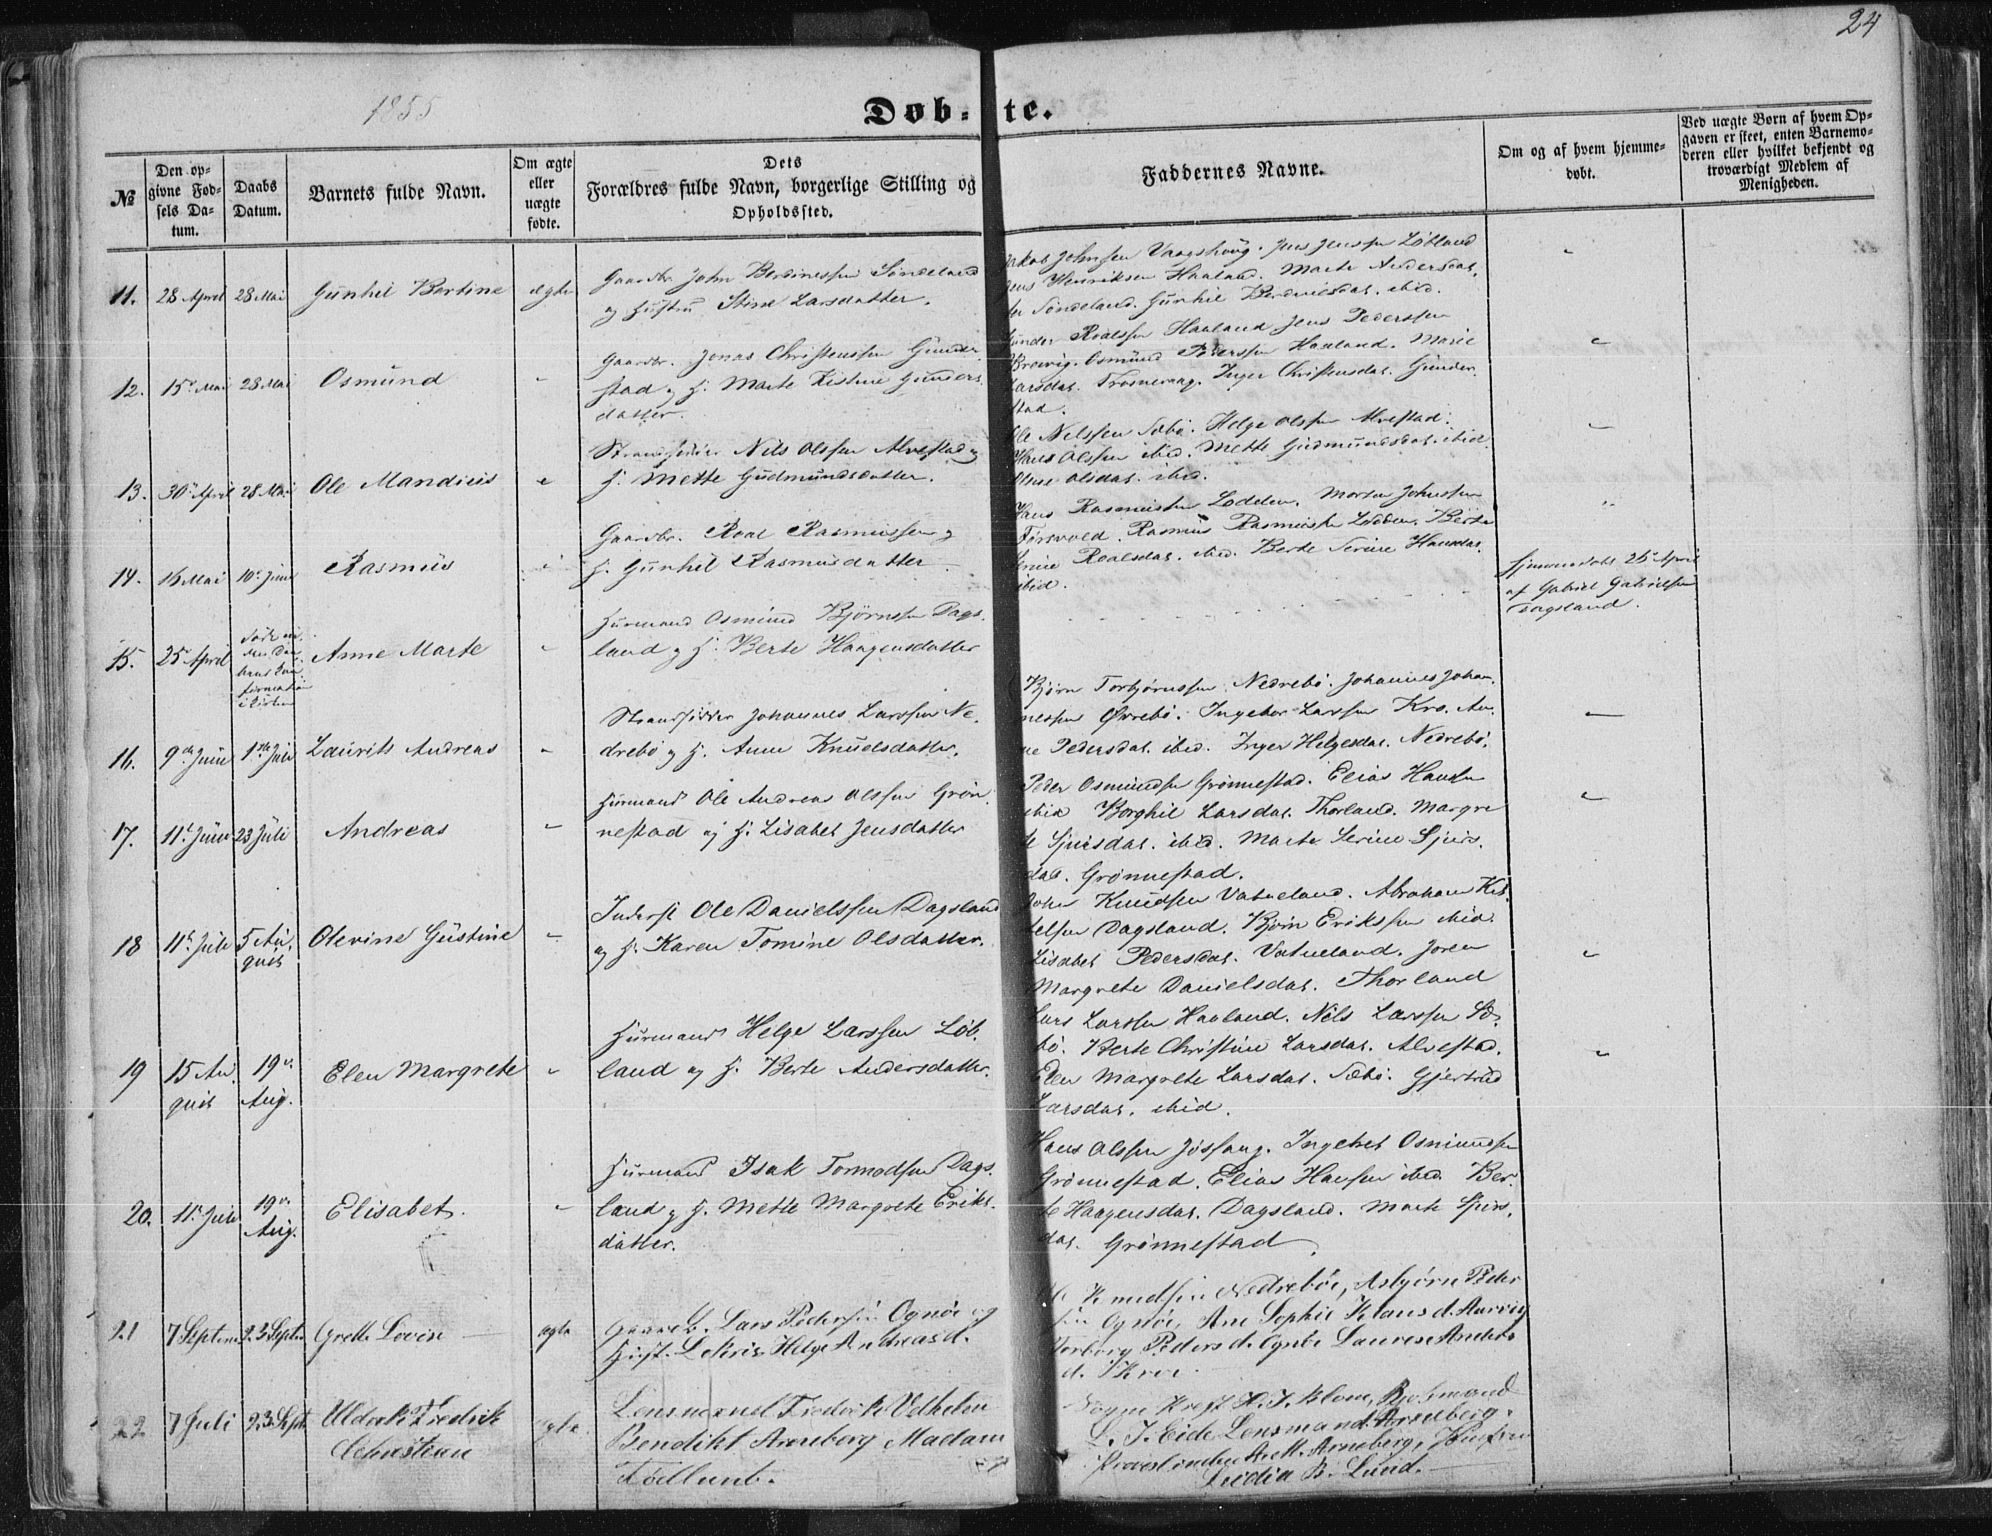 24
1855
Døb-te.
№
Den opgivne Fødsels Datum.
Daabs Datum.
Barnets fulde Navn.
Om ægte eller uægte fødte.
Dets Forældres fulde Navn, borgerlige Stilling og Opholdssted.
Faddernes Navne.
Om og af hvem hjemmedøbt.
Ved uægte Børn af hvem Opgaven er skeet, enten Barnemoderen eller hvilket bekjendt og troværdigt Medlem af Menigheden.
11. 28 April 28 Mai Gunhil Bertine ægte
Gaardbr. John Berdinessen Søndeland
og Hustru Stine Larsdatter.
Jakob Johnsen Vaagshoug. Jens Jensen Løbland
Jens Henriksen Haaland. Marte Andersdat.
Søndeland. Gunhil Berdinesdat. ibid.
12. 15 Mai 28 Mai Osmund "
Gaardbr. Jonas Christenssen Gunder
stad og H. Marte Kistine Gunders
datter.
Gunder Roalssen Haaland Jens Pederssen
Brevig. Osmund Pederssen Haaland. Marie
Larsdat. Trosnevaag. Inger Christensdat. Gunder
stad.
13. 30 April 28 Mai Ole Mandius "
Strandsidder Nils Olssen Alvestad og
H. Mette Gudmundsdatter.
Ole Nelssen Sæbö. Helge Olssen Alvestad.
Hans Olssen ibid. Mette Gudmundsdat. ibid.
Olsdat. ibid.
14. 16 Mai 10 Juni Rasmus "
Gaardbr. Roal Rasmussen og
H. Gunhil Rasmusdatter
Hans Rasmussen Lodden. Morten Johnssen
Førsvold. Rasmus Rasmussen Lodden. Berte
Roalsdat. ibid. Berte Serine Hansdat.
ibid.
15. 25 April
Anne Marte "
Husmand Osmund Bjørnssen Dags
land og H. Berte Haagensdatter
Hjemmedøbt 25 April
af Gabriel Gabrielsen
Dagsland.
16. 9de Juni 1ste Juli Laurits Andreas "
Strandsidder Johannes Larssen Ne
drebö og H. Anne Knudsdatter.
Bjørn Torbjørnssen Nedrebö. Johannes Johan
nessen Øvrebö. Ingebor Larssen Kro. An
ne Pedersdat. ibid. Inger Helgesdat. Nedrebö.
17. 11 Juni 23 Juli Andreas "
Husmand Ole Andreas Olssen Grøn
nestad og H. Lisabet Jensdatter
Peder Osmundsen Grønnestad. Elias Hansen
ibid Borghil Larsdat. Thorland. Margre
te Sjursdat. ibid. Marte Serine Sjurs
dat. Grønnestad.
18 11 Juli 5 Au
gust Olevine Gustine "
Inderst Ole Danielssen Dagsland
og H. Karen Tomine Olsdatter.
John Knudsen Vatneland. Abraham Ket
telsen Dagsland. Bjørn Erikssen ibid.
Lisabet Pedersdat. Vatneland. Joren
Margrete Danielsdat. Thorland
19 15 Au
gust 19 Aug. Elen Margrete "
Husmand Helge Larssen Løb
land og H. Berte Andersdatter.
Lars Larssen Haaland. Nels Larssen Sæ
bö. Berte Christine Larsdat. Alvestad.
Elen Margrete Larsdat. Sæbö. Gjertrud
Larsdat. ibid.
20. 11 Juli 19 Aug. Elisabet. "
Husmand Isak Tormodsen Dags
land og H. Mette Margrete Eriks
datter.
Hans Olssen Jøsfang. Ingebret Osmundsen
Grønnestad. Elias Hansen ibid Ber
te Haagensdat. Dagsland. Marte Sjurs
dat. Grønnestad.
21 7 Septem 23 Septr Grethe Lovise ægte
Gaardb. Lars Pedersen Ognöe og
Hust. Helge Andreasd.
Knudsen Nedreböe, Asbjørn Peder
sen Ognöe, Ane Sophie Klausd. Aarvig
Torborg Pedersd. Ognöe Laurense Anders
d. Kroe.
22 7 Juli 23 Sept. Uldrik Fredrik
Christian ægte
Lensmand Fredrik Velhelm
Benedikt Arneberg Madam
Sogne Prest H. J. Blom,
L. J. Eide Lensmand Arneberg.
Arneberg, Jomfru
Lund.